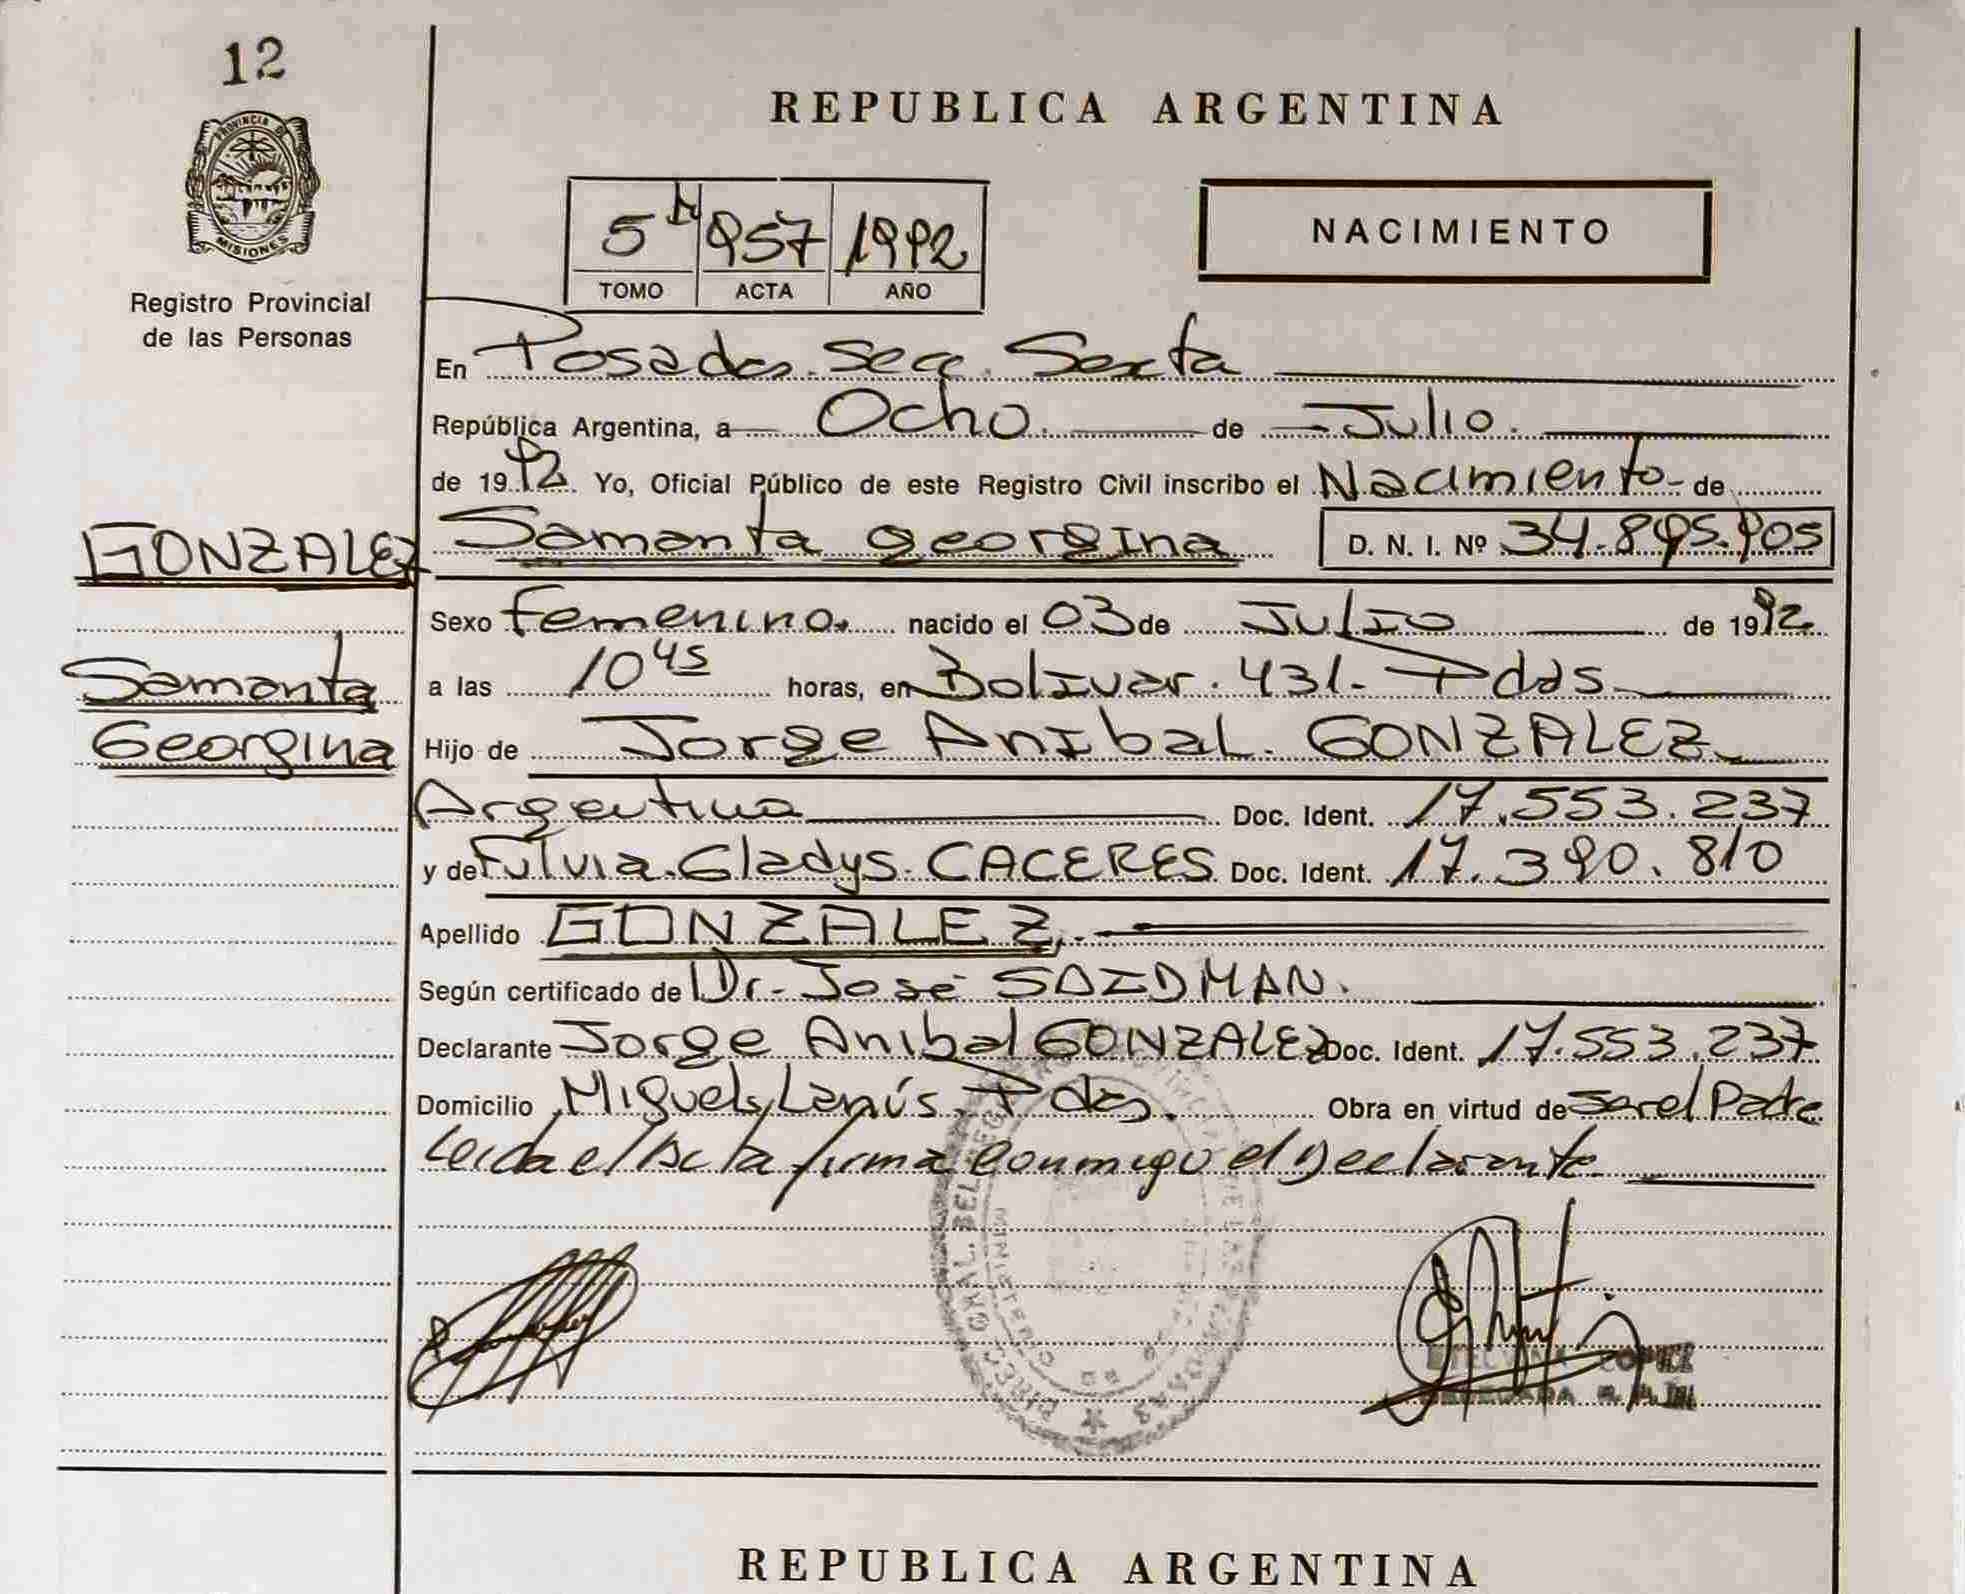 12
PROVINCIA DE
MISIONES
Registro Provincial
de las Personas
REPUBLICA ARGENTINA
NACIMIENTO
5 957 1992
TOMO ACTA AÑO
En Posadas. Secc. Sexta
República Argentina, a Ocho. de Julio.
de 1992. Yo, Oficial Público de este Registro Civil inscribo el Nacimiento de
GONZALEZ Samanta georgina D. N. I. Nº 34.895.905
Sexo femenino. nacido el 03 de Julio de 1992
Samanta a las 10 45 horas, en Bolivar. 431. Pdas
Georgina Hijo de Jorge Anibal. GONZALEZ
Argentina Doc. Ident. 17.553.237
y de Fulvia. Gladys. CACERES Doc. Ident. 17.390.810
Apellido GONZALEZ.
Según certificado de Dr. José SAIDMAN.
Declarante Jorge Anibal GONZALEZ Doc. Ident. 17.553.237
Domicilio Miguel Lanús. Pdas. Obra en virtud de ser el Padre
Leida el Acta firma conmigo el Declarante
REPUBLICA ARGENTINA